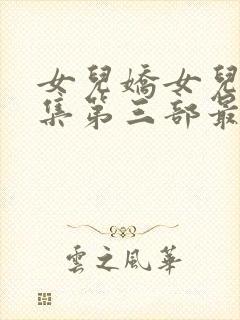 女兒嬌女兒
集第三部最
雲之風華